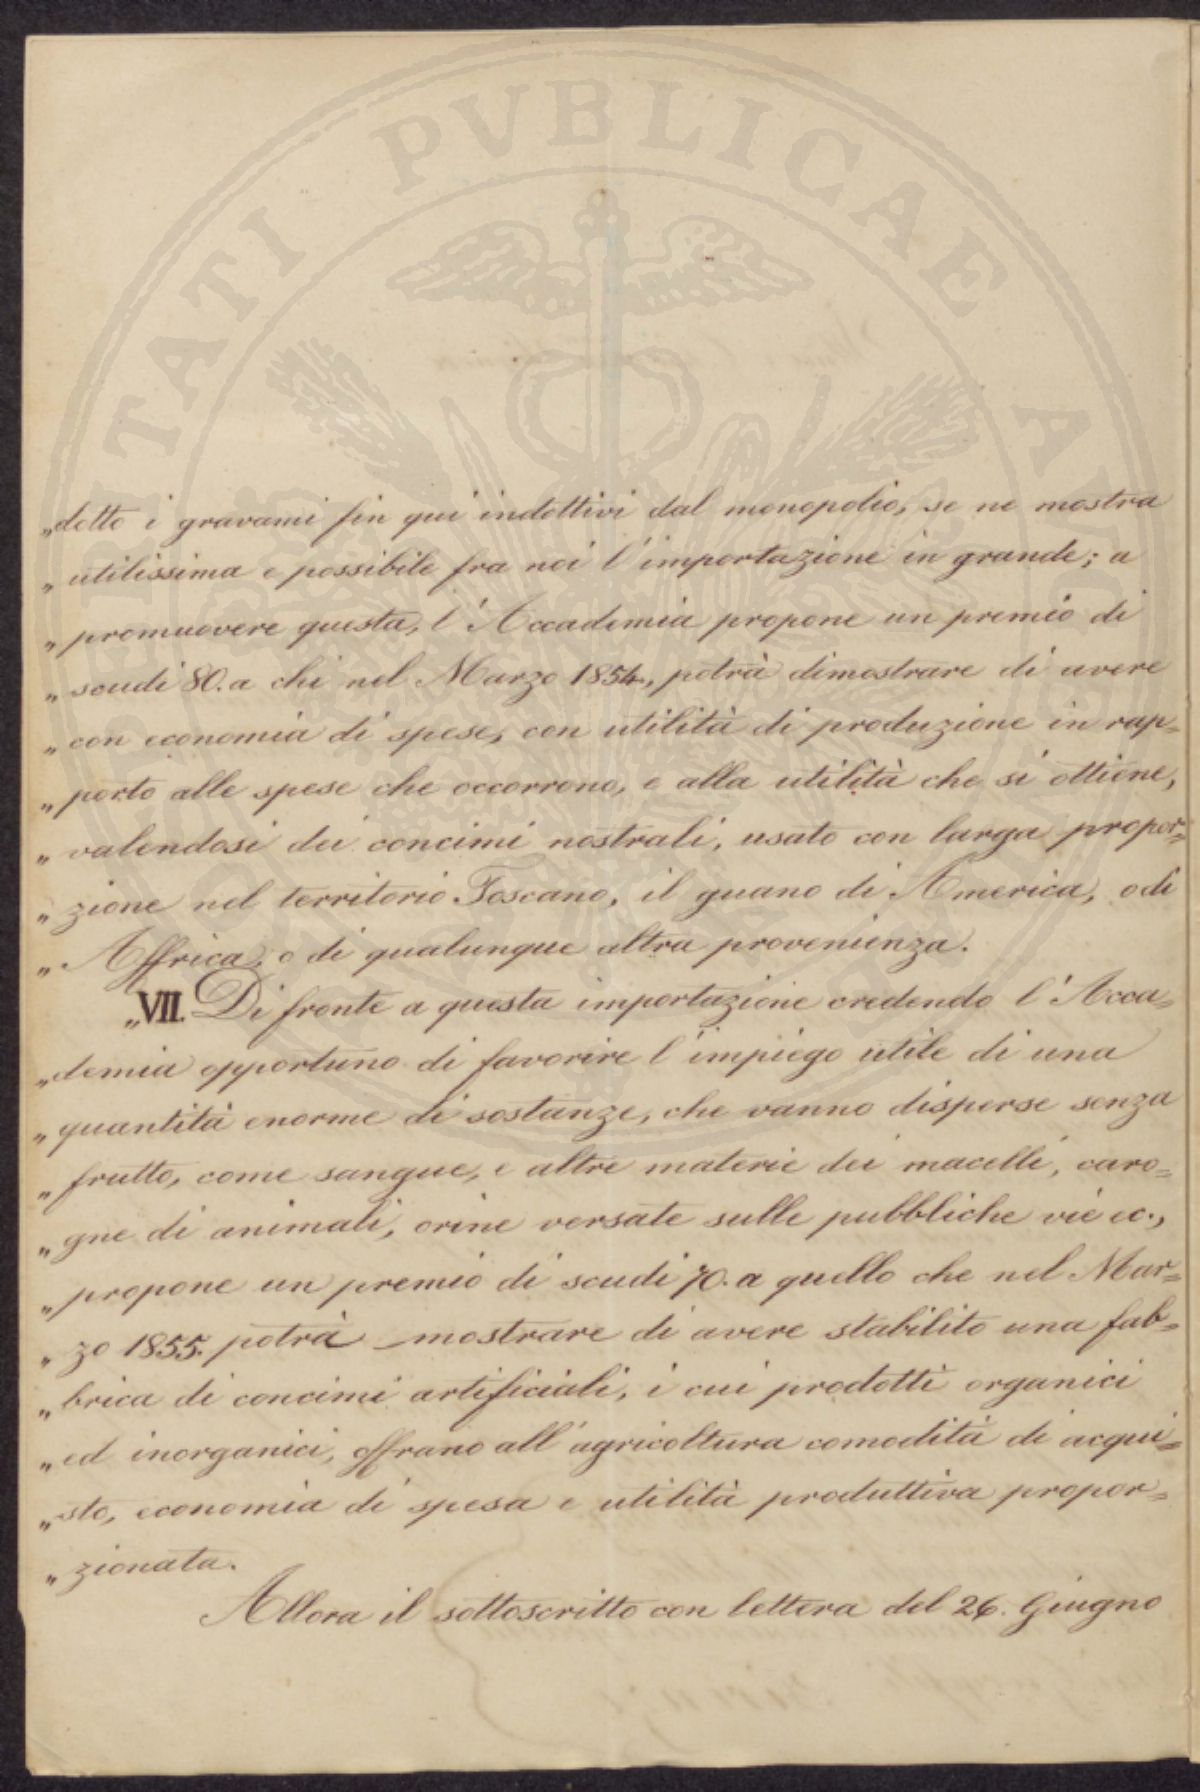 PROSPERITATI PVBLICAE AVGENDAE
„detto i gravami fin qui indottivi dal monopolio, se ne mostra
„ utilissima e possibile fra noi l'importazione in grande; a
„ promuovere questa, l'Accademia propone un premio di
„ scudi 80. a chi nel Marzo 1854., potrà dimostrare di avere
„ con economia di spese, con utilità di produzione in rap=
„ porto alle spese che occorrono, e alla utilità che si ottiene,
„ valendosi dei concimi nostrali, usato con larga propor=
„ zione nel territorio Toscano, il guano di America, o di
„ Affrica, o di qualunque altra provenienza.
„VII. Di fronte a questa importazione credendo l'Acca=
„demia opportuno di favorire l'impiego utile di una
„ quantità enorme di sostanze, che vanno disperse senza
„ frutto, come sangue, e altre materie dei macelli, caro=
„ gne di animali, orine versate sulle pubbliche vie ec.,
„ propone un premio di scudi 70. a quello che nel Mar=
„ zo 1855. potrà mostrare di avere stabilito una fab=
„ brica di concimi artificiali, i cui prodotti organici
„ ed inorganici, offrano all'agricoltura comodità di acqui=
„ sto, economia di spesa e utilità produttiva propor=
„ zionata.
Allora il sottoscritto con lettera del 26. Giugno